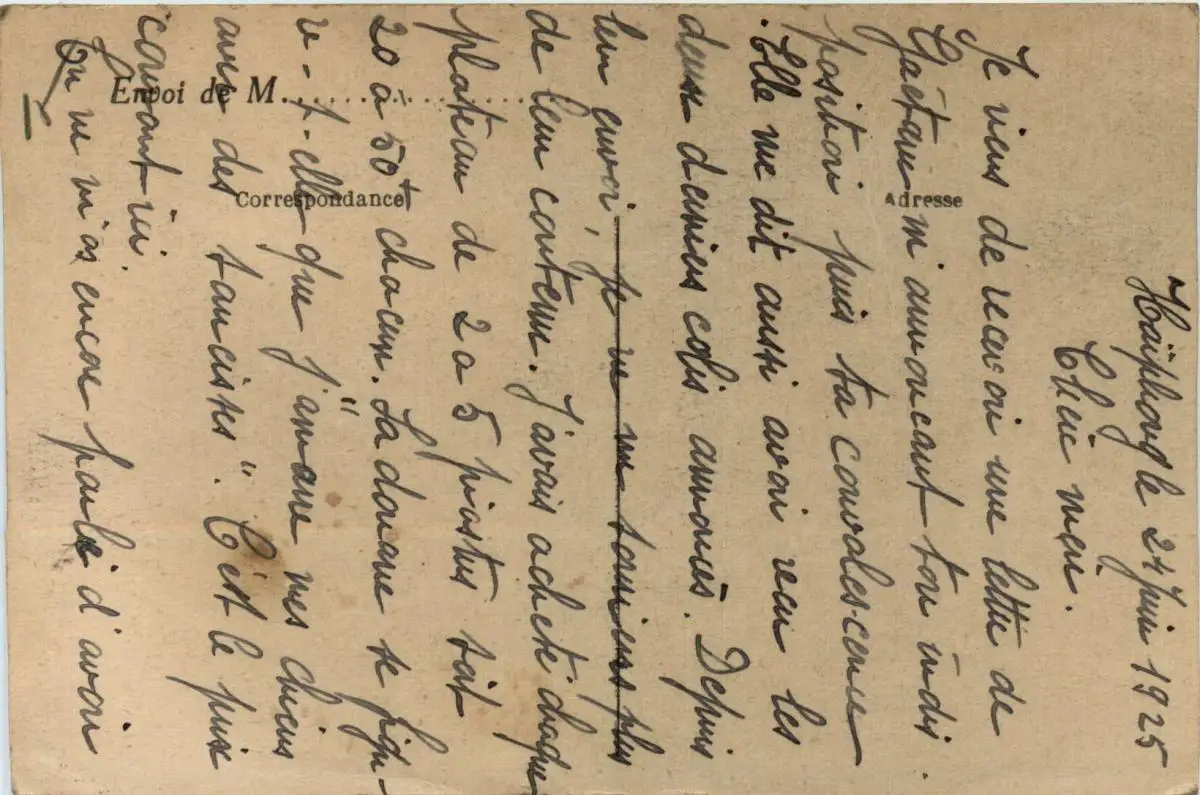 Envoi de M.
Correspondance
Adresse
Haïphong le 24 Juin 1925
Chère mère.
Je viens de recevoir une lettre de
Gaëtane m'annonçant ton indis
position puis ta convalescence
. Elle me dit aussi avoir reçu les
deux derniers colis annoncés. Depuis
leur envoi, je ne me souviens plus
de leur contenu. J'avais acheté chaque
plateau de 2 à 5 piastres soit
20 à 50f chacun. La douane se figu-
re-t-elle que j'amarre mes chiens
avec des "saucisses". C'est le prix
courant ici.
Tu ne m'as encore parlé d'avoir